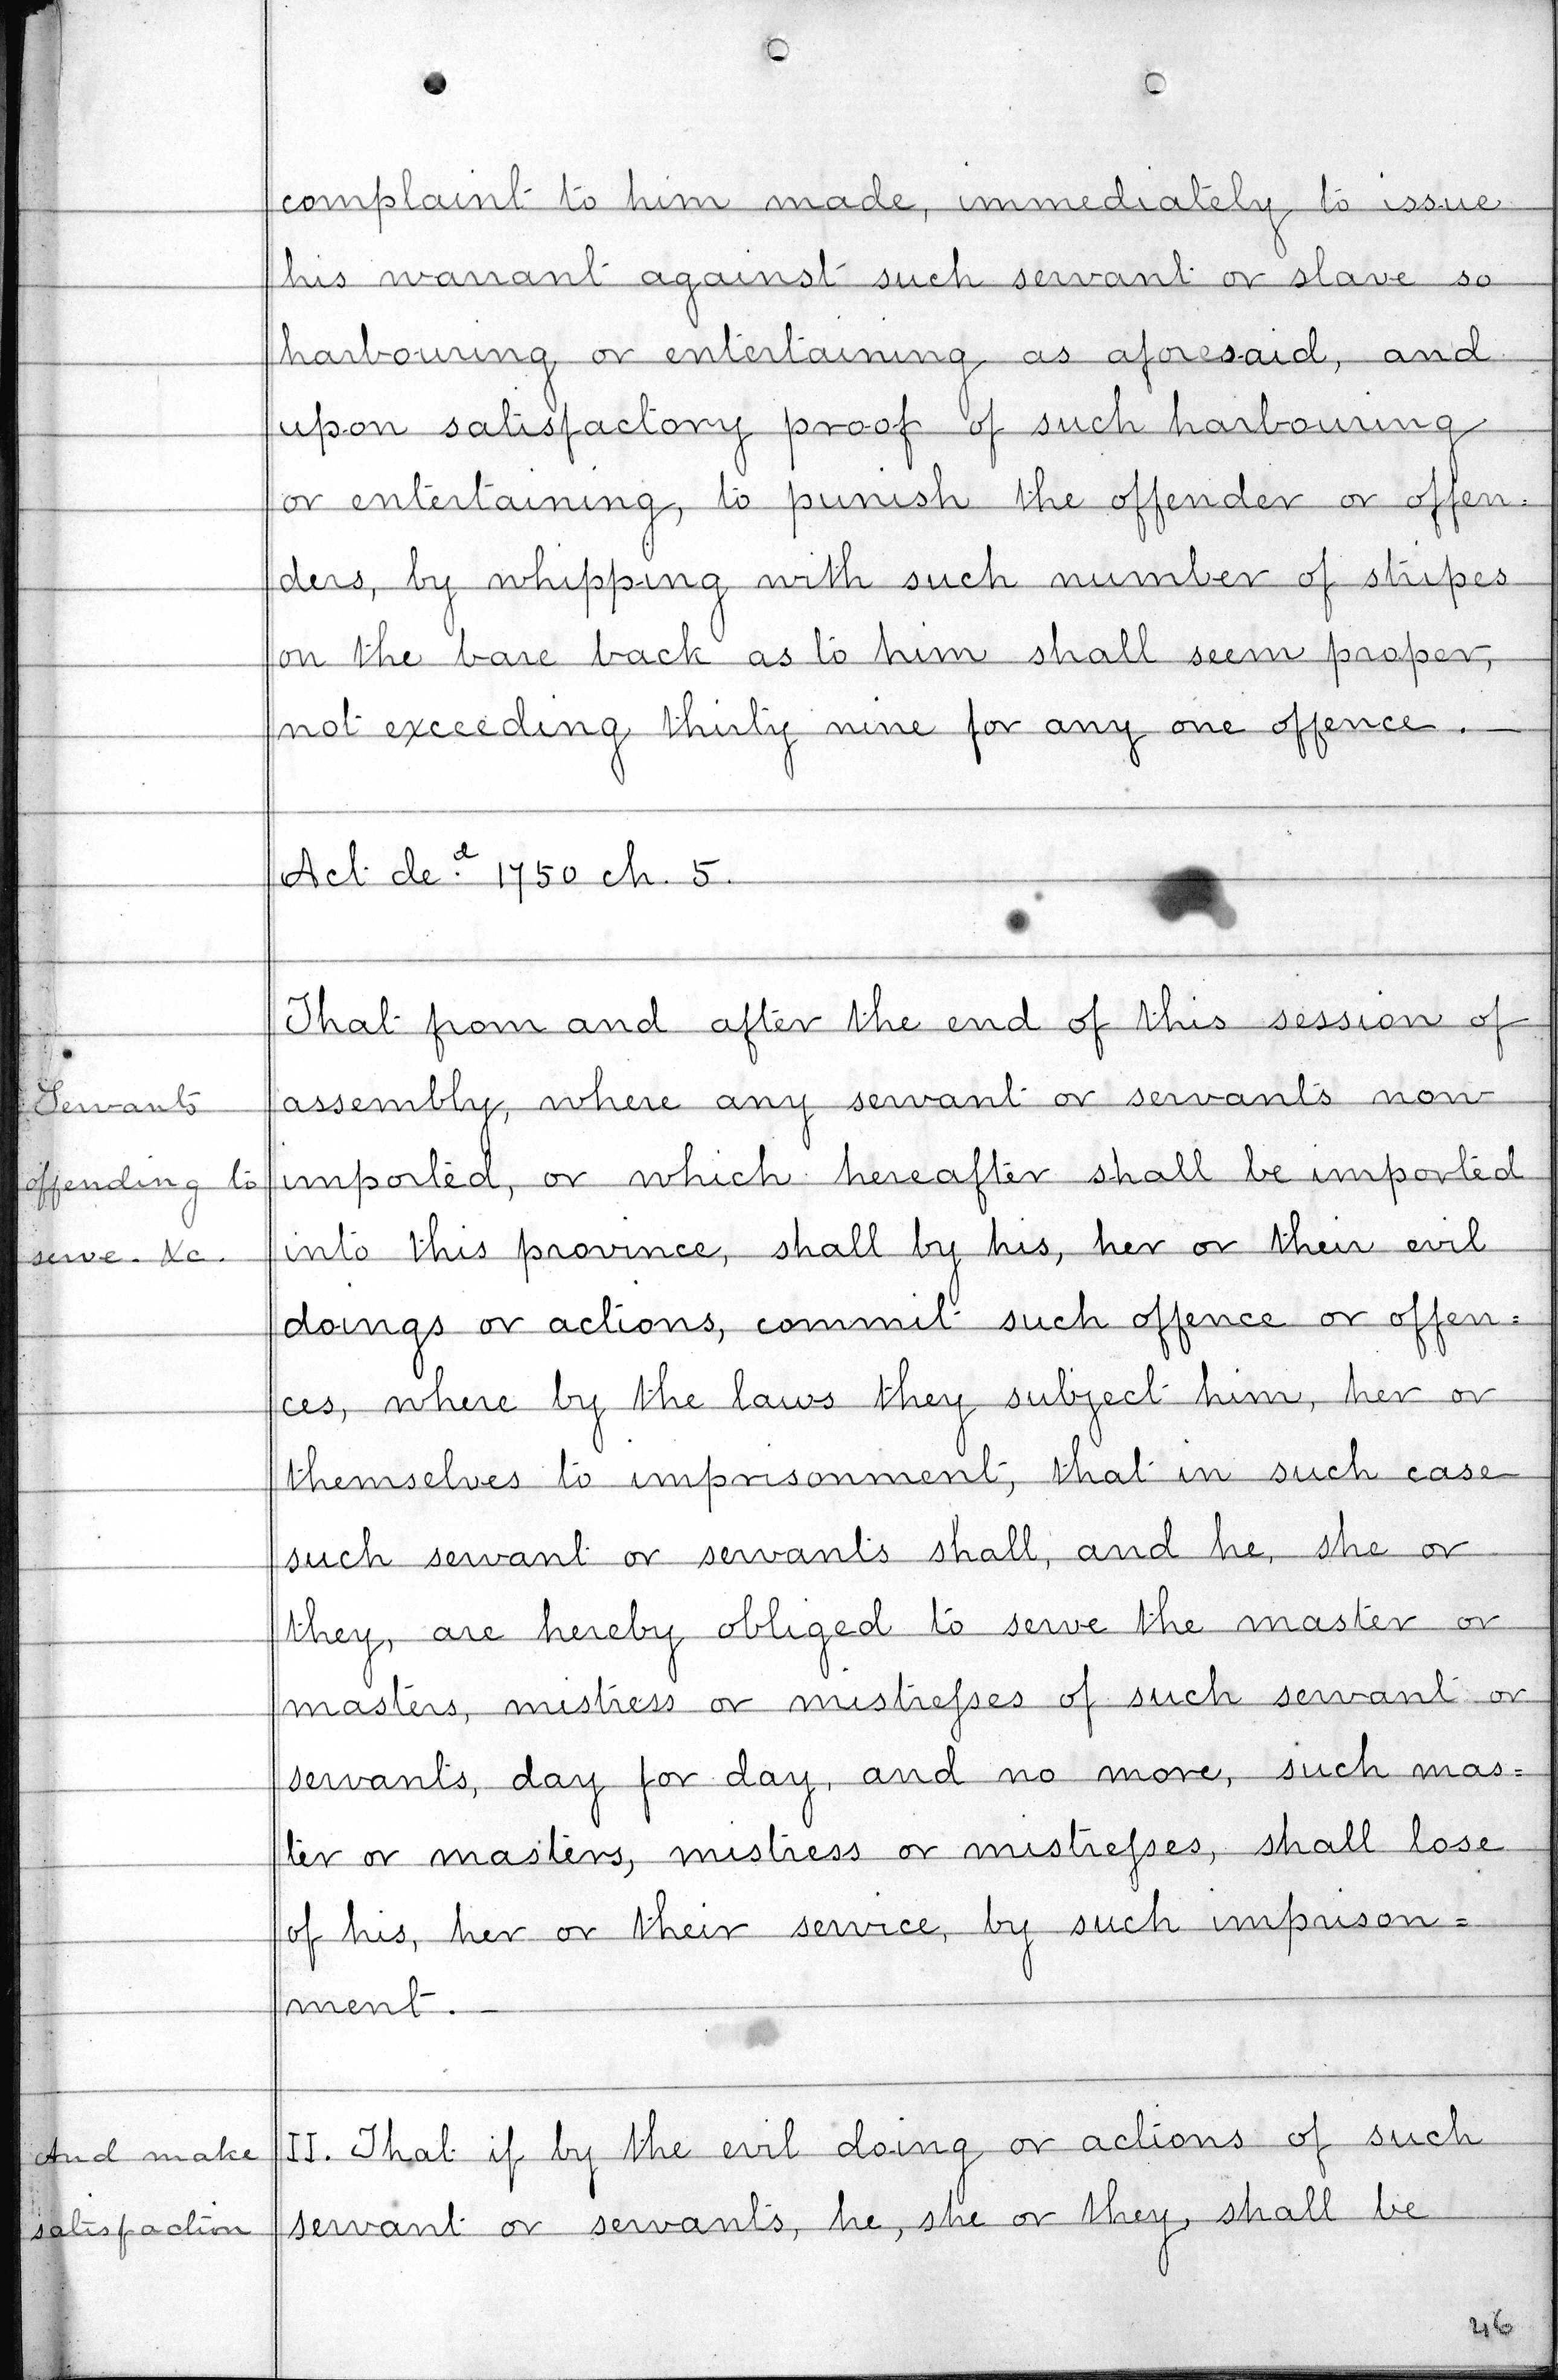 complaint to him made, immediately to issue
his warrant against such servant or slave so
harbouring or entertaining as aforesaid, and
upon satisfactory proof of such harbouring
or entertaining, to punish the offender or offen=
ders, by whipping with such number of stripes
on the bare back as to him shall seem proper,
not exceeding thirty nine for any one offence. —
Act de.d 1750 ch. 5.
That from and after the end of this session of
Servants
assembly, where any servant or servants now
offending to
imported, or which hereafter shall be imported
serve. &c.
into this province, shall by his, her or their evil
doings or actions, commit such offence or offen=
ces, where by the laws they subject him, her or
themselves to imprisonment, that in such case
such servant or servants shall, and he, she or
they, are hereby obliged to serve the master or
masters, mistress or mistreſses of such servant or
servants, day for day, and no more, such mas=
ter or masters, mistress or mistreſses, shall lose
of his, her or their service, by such imprison=
ment. —
And make
II. That if by the evil doing or actions of such
satisfaction
servant or servants, he, she or they, shall be
46